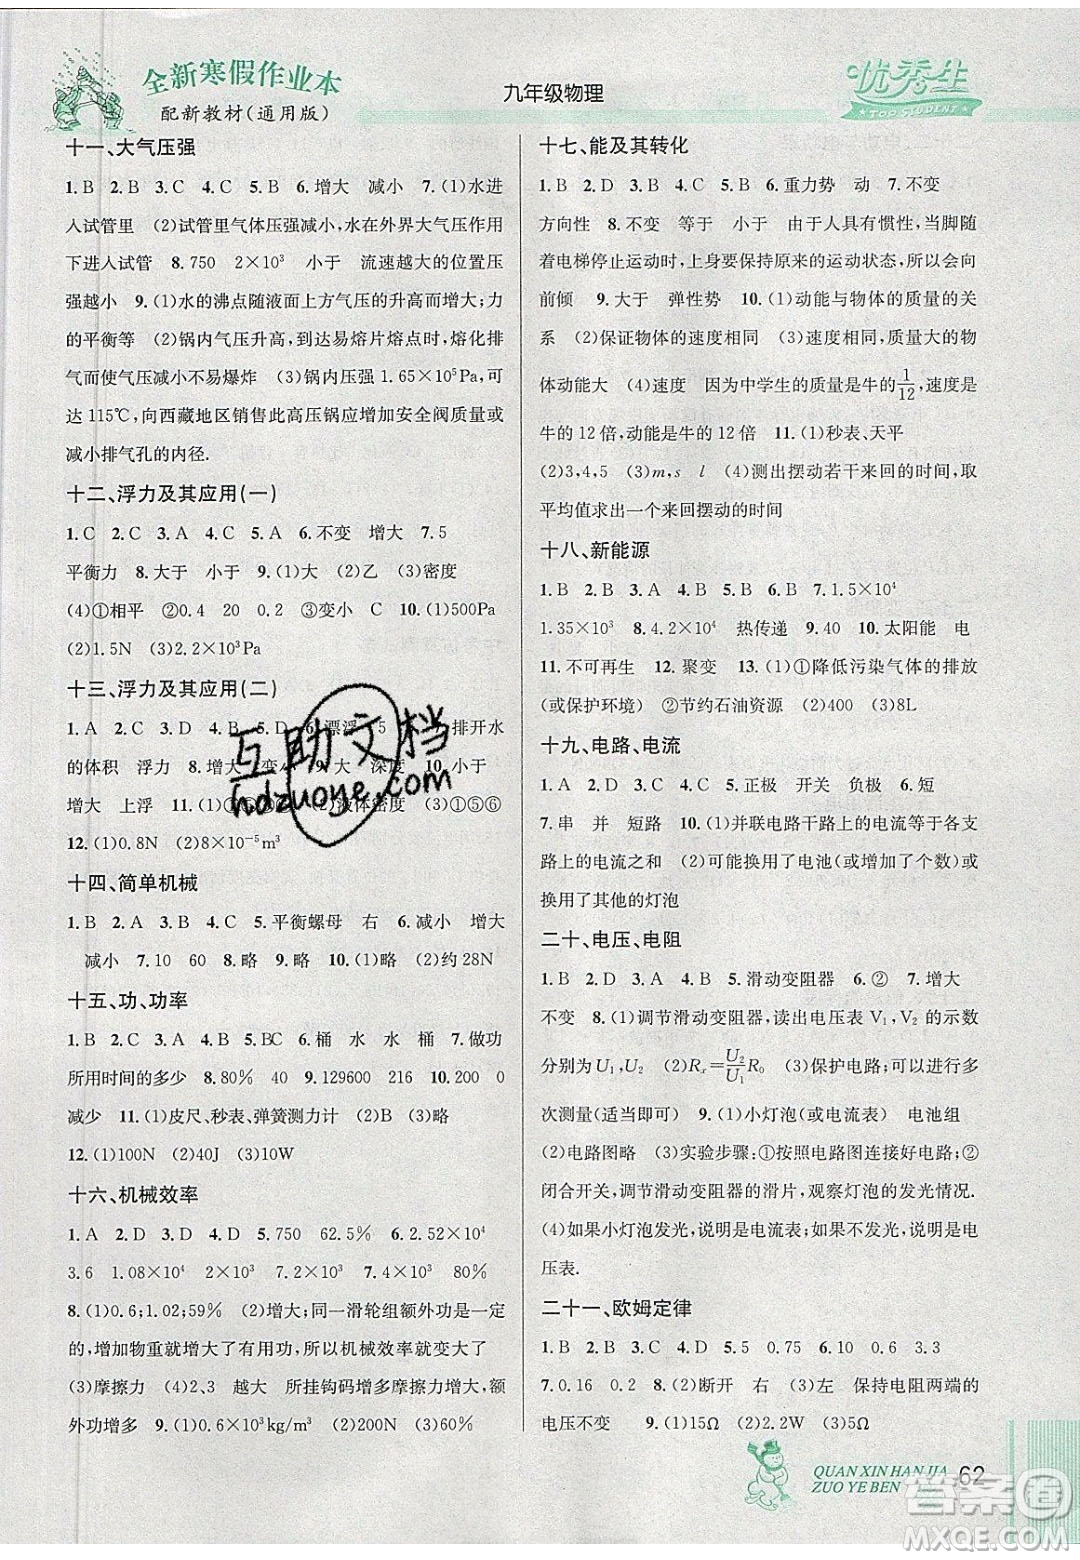 全新寒假作业本
配新教材(通用版)
九年级物理
优秀生
TOP STUDENT
十一、大气压强
1.B 2.B 3.C 4.C 5.B 6.增大 减小 7.(1)水进
入试管里 (2)试管里气体压强减小,水在外界大气压作用
下进入试管 8.750 2×10³ 小于 流速越大的位置压
强越小 9.(1)水的沸点随液面上方气压的升高而增大;力
的平衡等 (2)锅内气压升高,到达易熔片熔点时,熔化排
气而使气压减小不易爆炸 (3)锅内压强 1.65×10⁵Pa,可
达 115℃,向西藏地区销售此高压锅应增加安全阀质量或
减小排气孔的内径.
十二、浮力及其应用(一)
1.C 2.C 3.A 4.C 5.A 6.不变 增大 7.5
平衡力 8.大于 小于 9.(1)大 (2)乙 (3)密度
(4)①相平 ②0.4 20 0.2 ③变小 C 10.(1)500Pa
(2)1.5N (3)0.6×10³Pa
十三、浮力及其应用(二)
1.A 2.D 3.D 4.B 5.D 6.漂浮 5 排开水
的体积 浮力 8.增大 变小 9.大 深度 10.小于
增大 上浮 11.(1)①⑤ (2)液体密度 (3)①⑤⑥
12.(1)0.8N (2)8×10⁻⁵m³
十四、简单机械
1.B 2.A 3.B 4.C 5.平衡螺母 右 6.减小 增大
减小 7.10 60 8.略 9.略 10.(1)略 (2)约28N
十五、功、功率
1.B 2.C 3.A 4.B 5.BC 6.桶 水 水 桶 7.做功
所用时间的多少 8.80% 40 9.129600 216 10.200 0
减少 11.(1)皮尺、秒表、弹簧测力计 (2)B (3)略
12.(1)100N (2)40J (3)10W
十六、机械效率
1.A 2.D 3.D 4.D 5.750 62.5% 6.5.4×10⁴
3.6 1.08×10⁴ 2×10³ 7.2×10³ 7.4×10⁴ 80%
8.(1)0.6;1.02;59% (2)增大;同一滑轮组额外功是一定
的,物体越重,有用功越大,所以机械效率就变大
(3)摩擦力 (4)2、3 越大 所挂钩码增多摩擦力增大,额
外功增多 9.(1)0.6×10³kg/m³ (2)200N (3)60%
十七、能及其转化
1.B 2.D 3.B 4.A 5.B 6.重力势 动 7.不变
方向性 8.不变 等于 减小 由于人具有惯性,当脚随
着电梯停止运动时,上身要保持原来的运动状态,所以会向
前倾 9.大于 弹性势 10.(1)动能与物体的质量的关
系 (2)保证物体的速度相同 (3)速度相同,质量大的物
体动能大 (4)速度 因为中学生的质量是牛的1/12,速度是
牛的 12 倍,动能是牛的 12 倍 11.(1)秒表、天平
(2)3,4,5 (3)m,s l (4)测出摆动若干来回的时间,取
平均值求出一个来回摆动的时间
十八、新能源
1.B 2.B 3.A 4.D 5.B 6.D 7.1.5×10⁴
1.35×10³ 8.4.2×10⁴ 热传递 9.40 10.太阳能 电
11.不可再生 12.聚变 13.(1)①降低污染气体的排放
(或保护环境) ②节约石油资源 (2)400 (3)8L
十九、电路、电流
1.A 2.D 3.C 4.C 5.正极 开关 负极 6.短
7.串 并 短路 10.(1)并联电路干路上的电流等于各支
路上的电流之和 (2)可能换用了电池(或增加了个数)或
换用了其他的灯泡
二十、电压、电阻
1.B 2.D 3.A 4.D 5.滑动变阻器 6.② 7.增大
不变 8.(1)调节滑动变阻器,读出电压表 V₁,V₂ 的示数
分别为 U₁,U₂ (2)Rₓ=U₂/U₁R₀ (3)保护电路;能进行多
次测量(适当即可) 9.(1)小灯泡(或电流表) 电池组
(2)电路图略 (3)实验步骤:①按照电路图连接电路;②
闭合开关,调节滑动变阻器的滑片,观察灯泡的发光情况.
(4)如果小灯泡发光,说明是电流表;如果不发光,说明是电
压表.
二十一、欧姆定律
1.B 2.B 3.C 4.D 5.5 0.75 6.2 3.3
7.0.16 0.2 8.(2)断开 右 (3)左 保持电阻两端的
电压不变 9.(1)15Ω (2)2.2W (3)5Ω
互助文档
hdzuoye.com
QUAN XIN HAN JIA
ZUO YE BEN
62
答案圈
MXQE.COM